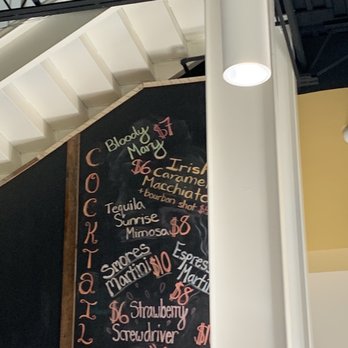 COCKTAIL
Bloody $7
Mary
$6 Irish
Caramel
Macchiato
+ bourbon shot
Tequila
Sunrise
Mimosa $8
Smores
Martini $10
$8
$6 Strawberry
Screwdriver